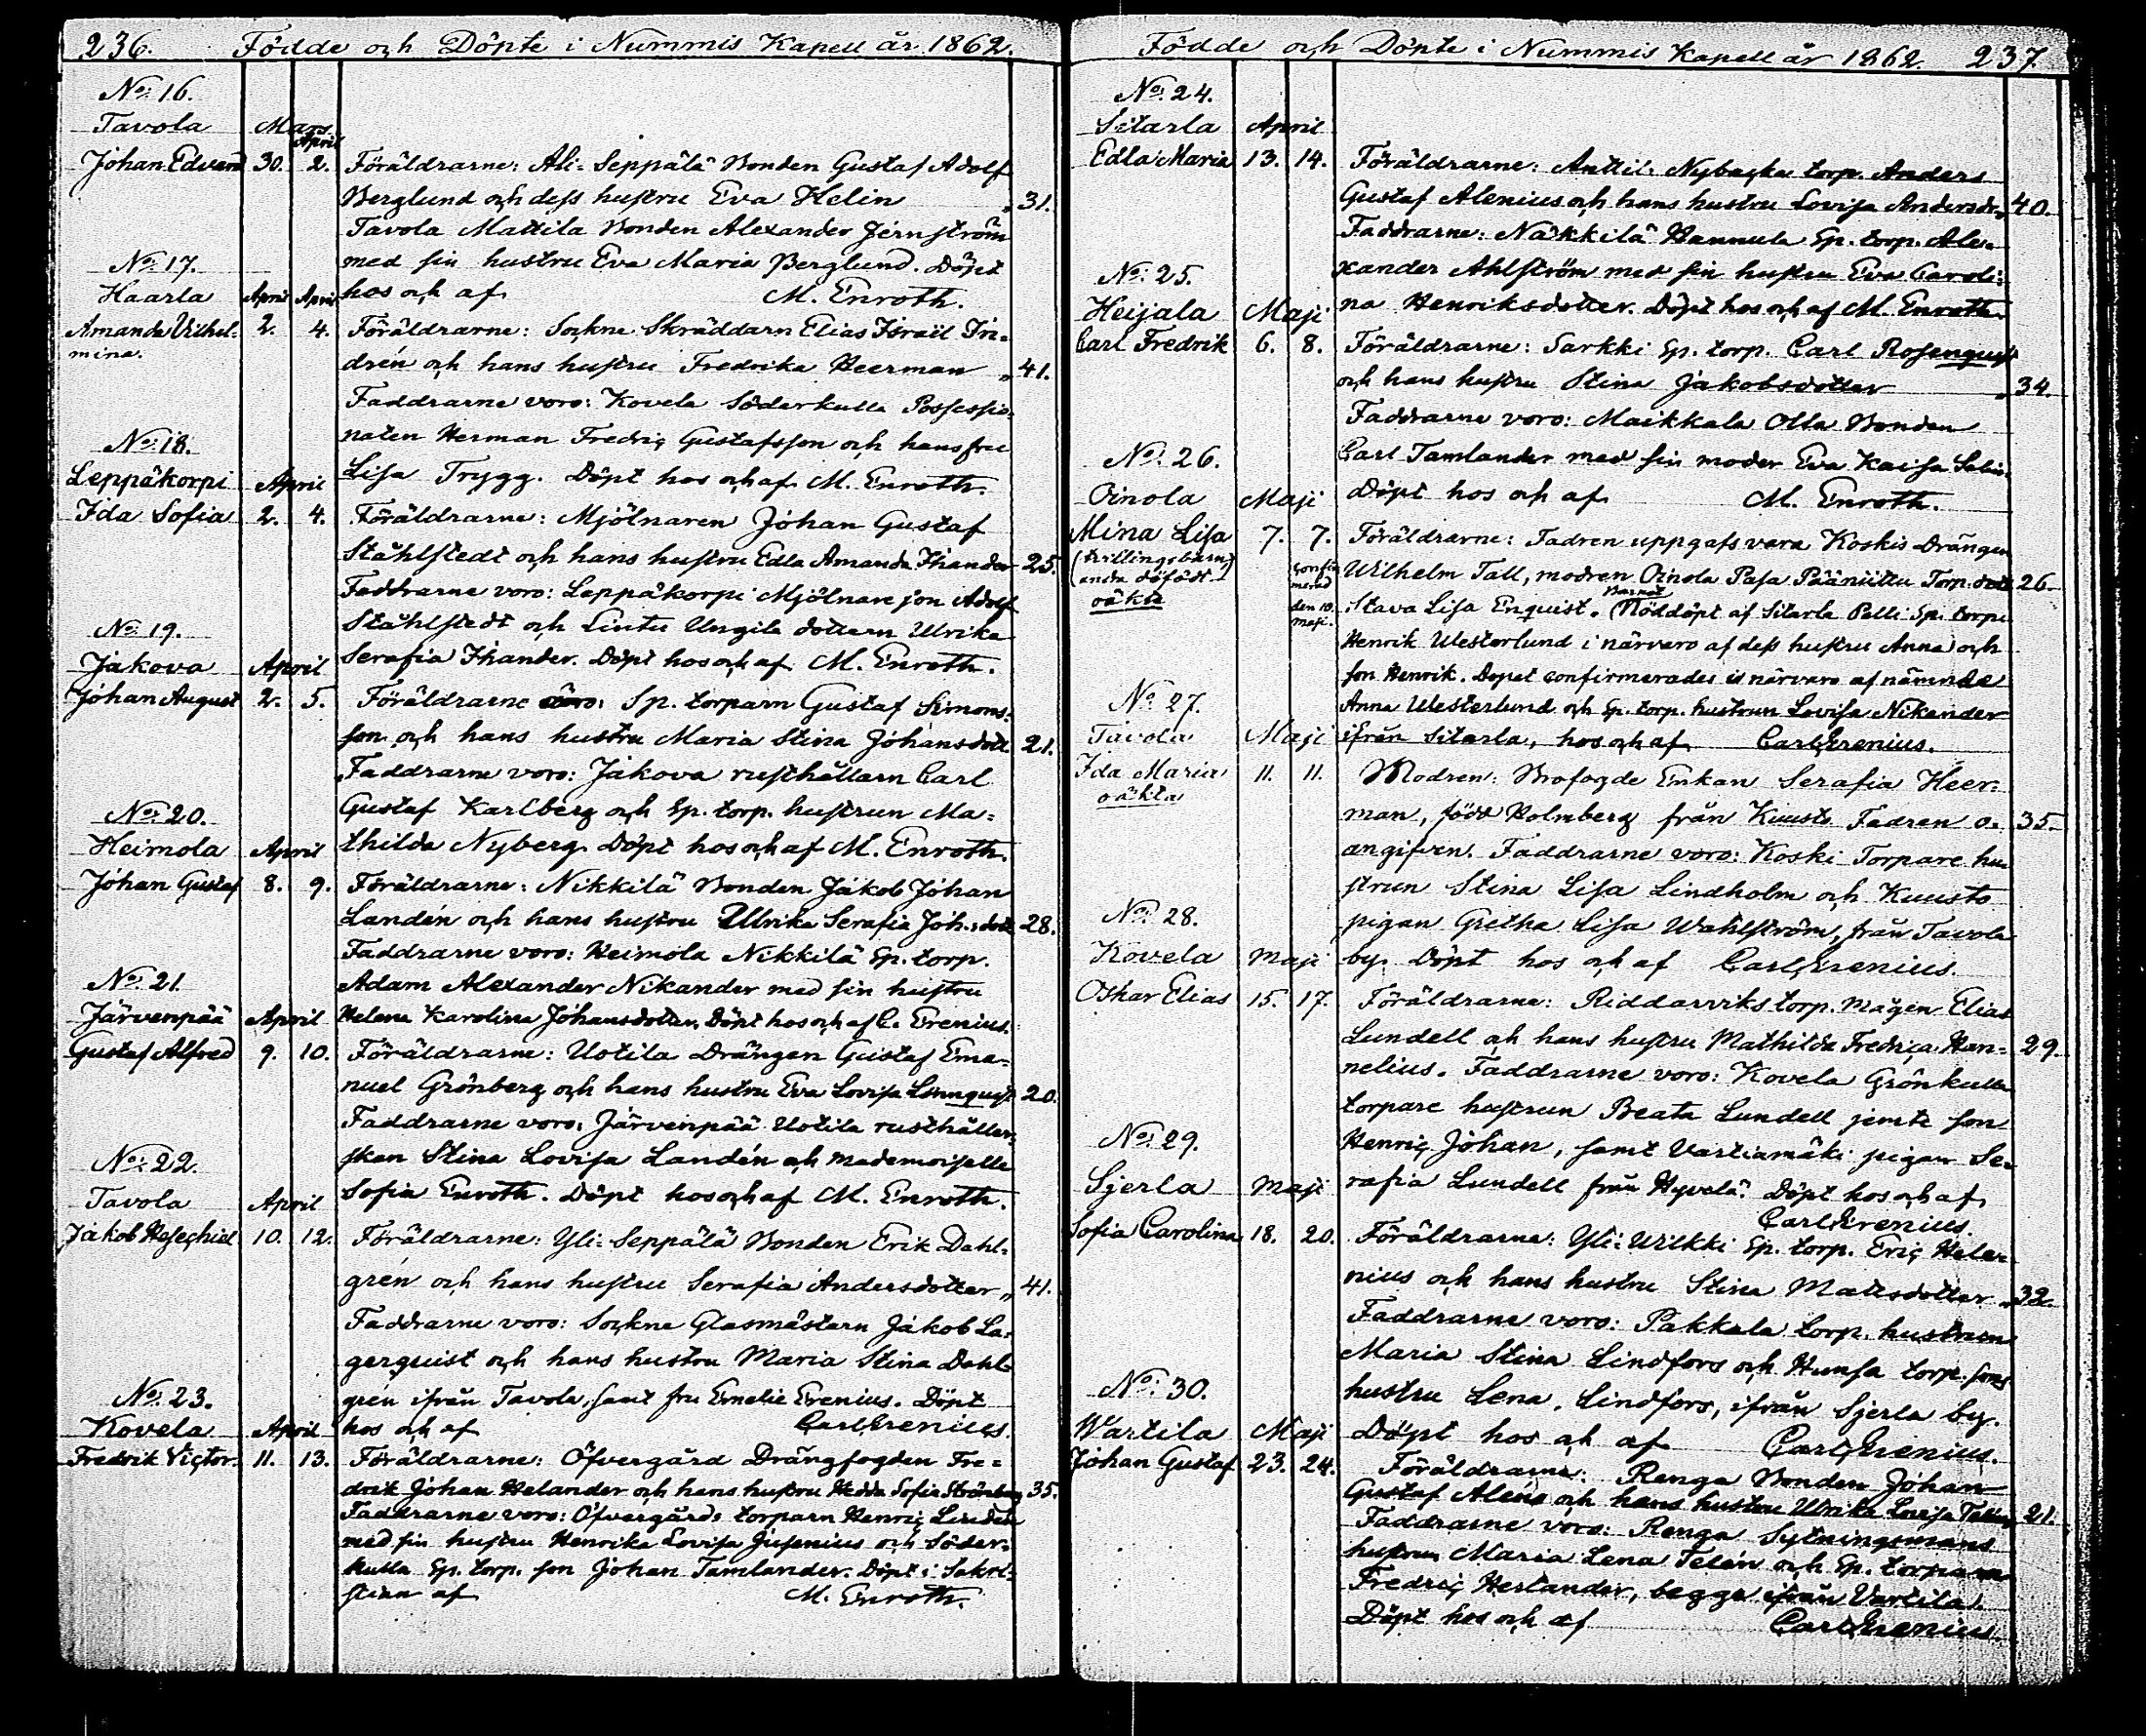 236. Födde och Döpte i Nummis Kapell år 1862.
No: 16.
Tavola Mars April
Johan Edvard 30. 2. Föräldrarne: Ali-Seppälä Bonden Gustaf Adolf
Berglund och dess hustru Eva Helin „ 31.
Tavola Mattila Bonden Alexander Jernström
No: 17. med sin hustru Eva Maria Berglund. Döpt
Haarla April April hos och af M. Enroth.
Amanda Vilhel- 2. 4. Föräldrarne: Sockne Skräddarn Elias Israël Fri-
mina. drén och hans hustru Fredrika Heerman „ 41.
Faddrarne voro: Kovela Söderkulla Possessio-
No: 18. naten Herman Fredric Gustafsson och hans fru
Leppäkorpi April Lisa Trygg. Döpt hos och af M. Enroth.
Ida Sofia 2. 4. Föräldrarne: Mjölnaren Johan Gustaf
Ståhlstedt och hans hustru Edla Amanda Ihander 25.
Faddrarne voro: Leppäkorpi Mjölnare son Adolf
No: 19. Ståhlstedt och Lintu Ungila dottern Ulrika
Jakova April Serafia Ihander. Döpt hos och af M. Enroth.
Johan August 2. 5. Föräldrarne: Sp. torparn Gustaf Simons-
son och hans hustru Maria Stina Johansdott. 21.
Faddrarne voro: Jakova rusthållarn Carl
No: 20. Gustaf Karlberg och Sp. torp. hustrun Ma-
Heimola April thilda Nyberg. Döpt hos och af M. Enroth.
Johan Gustaf 8. 9. Föräldrarne: Nikkilä Bonden Jakob Johan
Landén och hans hustru Ulrika Serafia Joh:sdott. 28.
Faddrarne voro: Heimola Nikkilä Sp. torp.
No: 21. Adam Alexander Nikander med sin hustru
Järvenpää April Helena Karolina Johansdotter. Döpt hos och af C. Erenius.
Gustaf Alfred 9. 10. Föräldrarne: Uotila Drängen Gustaf Ema-
nuel Grönberg och hans hustru Eva Lovisa Lönnquist 20.
Faddrarne voro: Järvenpää Uotila rusthåller-
No: 22. skan Stina Lovisa Landén och Mademoiselle
Tavola April Sofia Enroth. Döpt hos och af M. Enroth.
Jakob Hesechiel 10. 12. Föräldrarne: Yli-Seppälä Bonden Erik Dahl-
grén och hans hustru Serafia Andersdotter „ 41.
Faddrarne voro: Sockne Glasmästarn Jakob La-
gerquist och hans hustru Maria Stina Dahl-
No: 23. grén ifrån Tavola, samt fru Emelie Erenius. Döpt
Kovela April hos och af Carl Erenius.
Fredrik Victor 11. 13. Föräldrarne: Öfvergård Drängfogden Fre-
drik Johan Helander och hans hustru Hedda Sofia Strömberg 35.
Faddrarne voro: Öfvergårds torparn Henric Lindén
med sin hustru Henrika Lovisa Jusenius och Söder-
kulla Sp. torp. son Johan Tamlander. Döpt i Sakri-
stian af M. Enroth.
Födde och Döpte i Nummis Kapell år 1862. 237.
No: 24.
Sitarla April
Edla Maria 13. 14. Föräldrarne: Anttil: Nybacka torp. Anders
Gustaf Alenius och hans hustru Lovisa Andersdr. „ 40.
Faddrarne: Näkkilä Hannula Sp. torp. Alex-
No: 25. xander Ahlström med sin hustru Eva Caroli-
Heijala Maji na Henriksdotter. Döpt hos och af M. Enroth.
Carl Fredrik 6. 8. Föräldrarne: Sarkki Sp. torp. Carl Rosenquist
och hans hustru Stina Jakobsdotter „ 34.
Faddrarne voro: Maikkala Olla Bonden
No: 26. Carl Tamlander med sin moder Eva Kaisa
Oinola Maji Döpt hos och af M. Enroth.
Mina Lisa 7. 7. Föräldrarne: Fadren uppgafs vara Koskis Drängen
(trillingsbarn, confir- Wilhelm Tall, modren Oinola Pasa Pääniittu Torp. dott. 26.
andra dödfödt) merad
oäkta den 10. Maji. Stava Lisa Enquist. Barnet Nöddöpt af Sitarla Pelli Sp. torp.
Henrik Westerlund i närvaro af dess hustru Anna och
son Henrik. Dopet confirmerades i närvaro af nämnde
No: 27. Anna Westerlund och Sp. torp. hustrun Lovisa Nikander
Tavola Maji ifrån Sitarla, hos och af Carl Erenius.
Ida Maria 11. 11. Modren: Brofogde Enkan Serafia Heer-
oäkta man, född Holmberg från Kuusto Fadren o- 35.
angifven. Faddrarne voro: Koski Torpare hu-
strun Stina Lisa Lindholm och Kuusto
No: 28. pigan Gretha Lisa Wahlström, från Tavola
Kovela Maji by. Döpt hos och af Carl Erenius.
Oskar Elias 15. 17. Föräldrarne: Riddarviks torp. Mågen Elias
Lundell och hans hustru Mathilda Fredrica Han- 29.
nelius. Faddrarne voro: Kovela Grönkulla
torpare hustrun Beata Lundell jemte son
No: 29. Henric Johan, samt Vartiamäki pigan Se-
Sjerla Maji rafia Lundell från Hyvelä. Döpt hos och af
Carl Erenius.
Sofia Carolina 18. 20. Föräldrarne: Yli-Wilkki Sp. torp. Eric Hele-
nius och hans hustru Stina Mattsdotter „ 32.
Faddrarne voro: Pakkala torp. hustrun
Maria Stina Lindfors och Hunsa torp. sons
No: 30. hustru Lena Lindfors, ifrån Sjerla by.
Wartila Maji Döpt hos och af Carl Erenius.
Johan Gustaf 23. 24. Föräldrarne: Renga Bonden Johan
Gustaf Alenö och hans hustru Ulrika Lovisa 21.
Faddrarne voro: Renga Sytningsmans
hustrun Maria Lena Telén och Sp. torparn
Fredric Herlander, begge ifrån Vartila.
Döpt hos och af Carl Erenius.